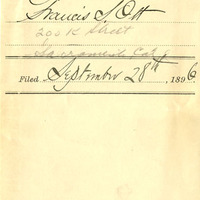 Francis S. Ott
200 K Street
Sacramento Cal.
Filed September 28th, 1896